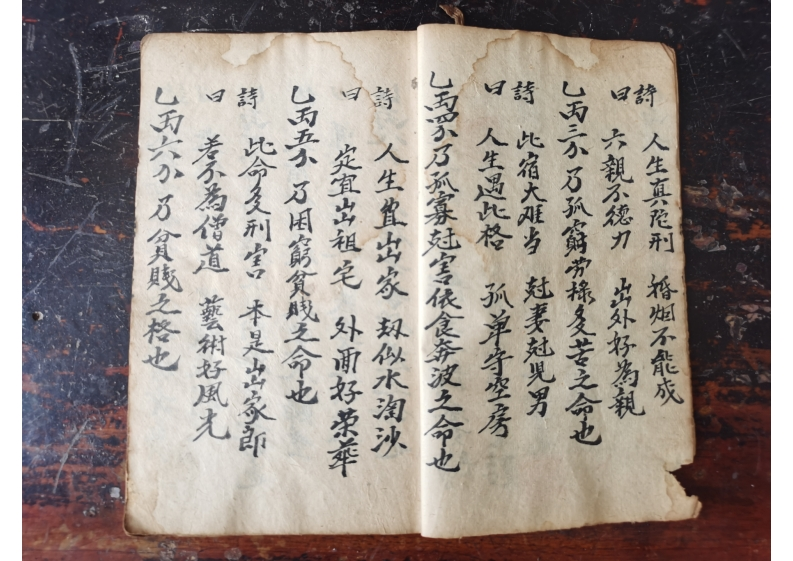 詩曰 人生真陀刑 婚烟不能成
六親不德力 出外好為親
乙丙三分 乃孤窮劳禄多苦之命也
詩曰 此宿大难当 尅妻尅児男
人生遇此格 孤单守空房
乙丙四分 乃孤寡尅害依食奔波之命也
詩曰 人生宜出家 劫似水淘沙
定宜出祖宅 外面好荣華
乙丙五分 乃困窮貧賎之命也
詩曰 此命多刑害 本是出家郎
若不為僧道 藝術好風光
乙丙六分 乃貧賎之格也